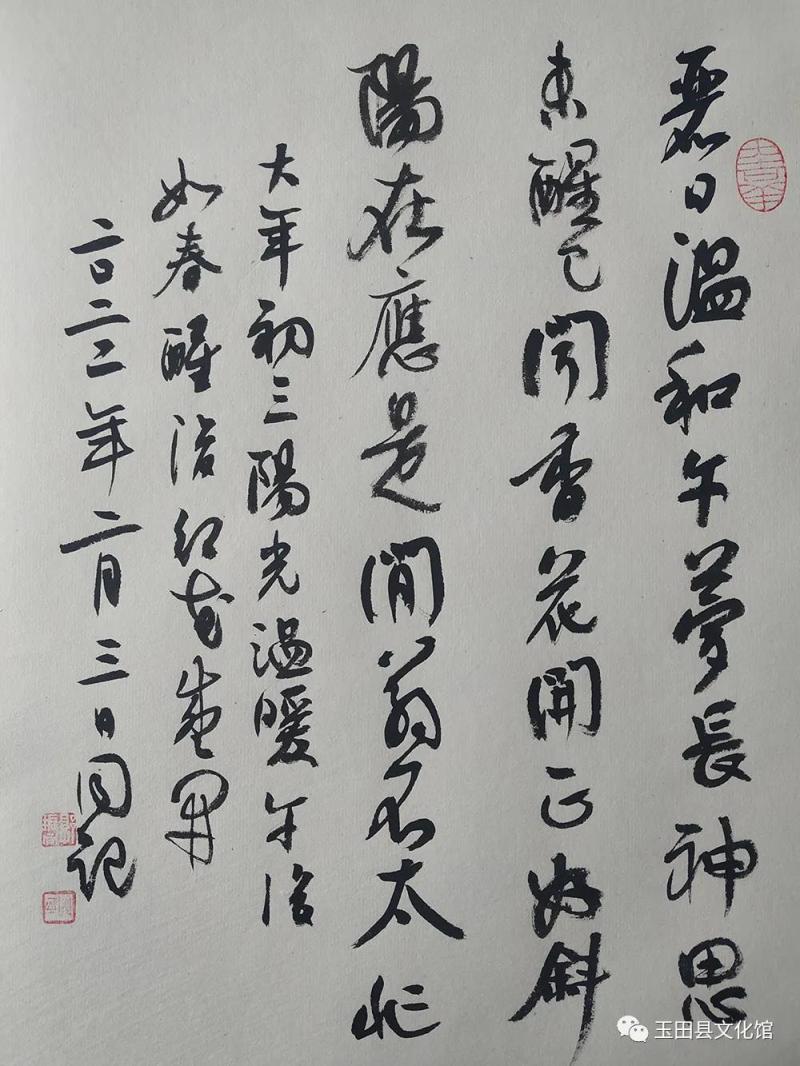 麗日溫和午夢長神思
未醒已聞香花開正好斜
陽在應是閒翁不太忙
大年初三陽光温暖午後
如春醒後紅花盛開
二〇二二年二月三日同記
玉田县文化馆